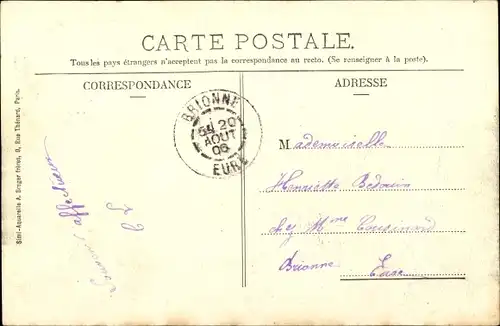 CARTE POSTALE.
Tous les pays étrangers n'acceptent pas la correspondance au recto. (Se renseigner à la poste).
CORRESPONDANCE
ADRESSE
Simi-Aquarelle A. Breger frères, 9, Rue Thénard, Paris.
BRIONNE
20
AOUT
06
EURE
Mademoiselle
Henriette Bedouin
chez Mme
Brionne
Eure